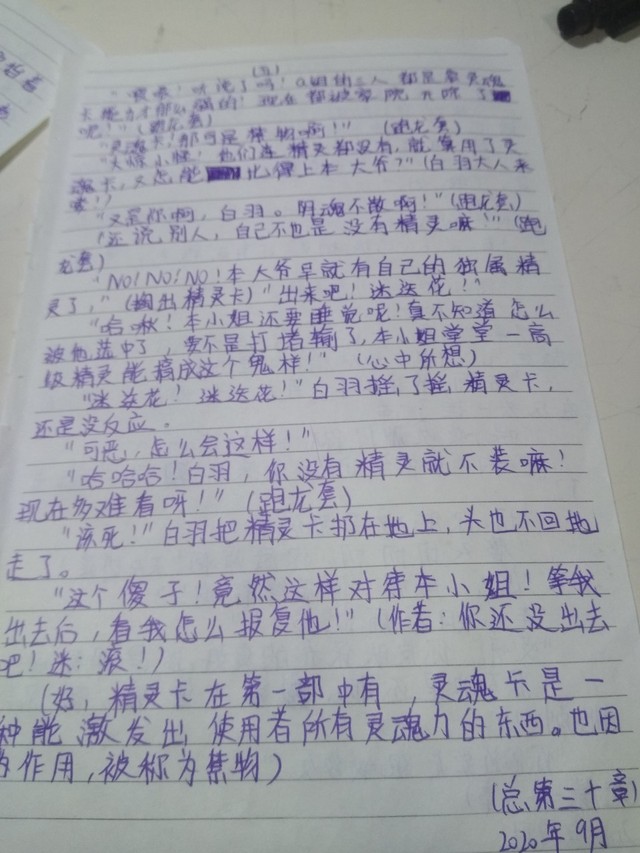 (五)
"喂喂!听说了吗!他们三人都是靠灵魂
卡能力才那么强的!现在都被学院开除了
吧!"(跑龙套)
"灵魂卡!那可是禁物啊!"(跑龙套)
"大惊小怪!他们连精灵都没有,就算用了灵
魂卡,又怎能比得上本大爷?"(白羽大人来
喽!)
"又是你啊,白羽。阴魂不散啊!"(跑龙套)
"还说别人,自己不也是没有精灵嘛!"(跑
龙套)
"NO!NO!NO!本大爷早就有自己的独属精
灵了,"(掏出精灵卡)"出来吧!迷迭花!"
"哈啾!本小姐还要睡觉呢!真不知道怎么
被他选中了,要不是打堵输了,本小姐堂堂一高
级精灵能搞成这个鬼样!"(心中所想)
"迷迭花!迷迭花!"白羽摇了摇精灵卡,
还是没反应。
"可恶,怎么会这样!"
"哈哈哈!白羽,你没有精灵就不装嘛!
现在多难看呀!"(跑龙套)
"该死!"白羽把精灵卡扔在地上,头也不回地
走了。
"这个傻子!竟然这样对待本小姐!等我
出去后,看我怎么报复他!"(作者:你还没出去
吧!迷:滚!)
(好,精灵卡在第一部中有,灵魂卡是一
种能激发出使用者所有灵魂力的东西。也因
作用,被称为禁物)
(总第三十章)
2020年9月